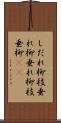 しだれ柳枝垂
れ柳垂れ柳枝
垂柳((